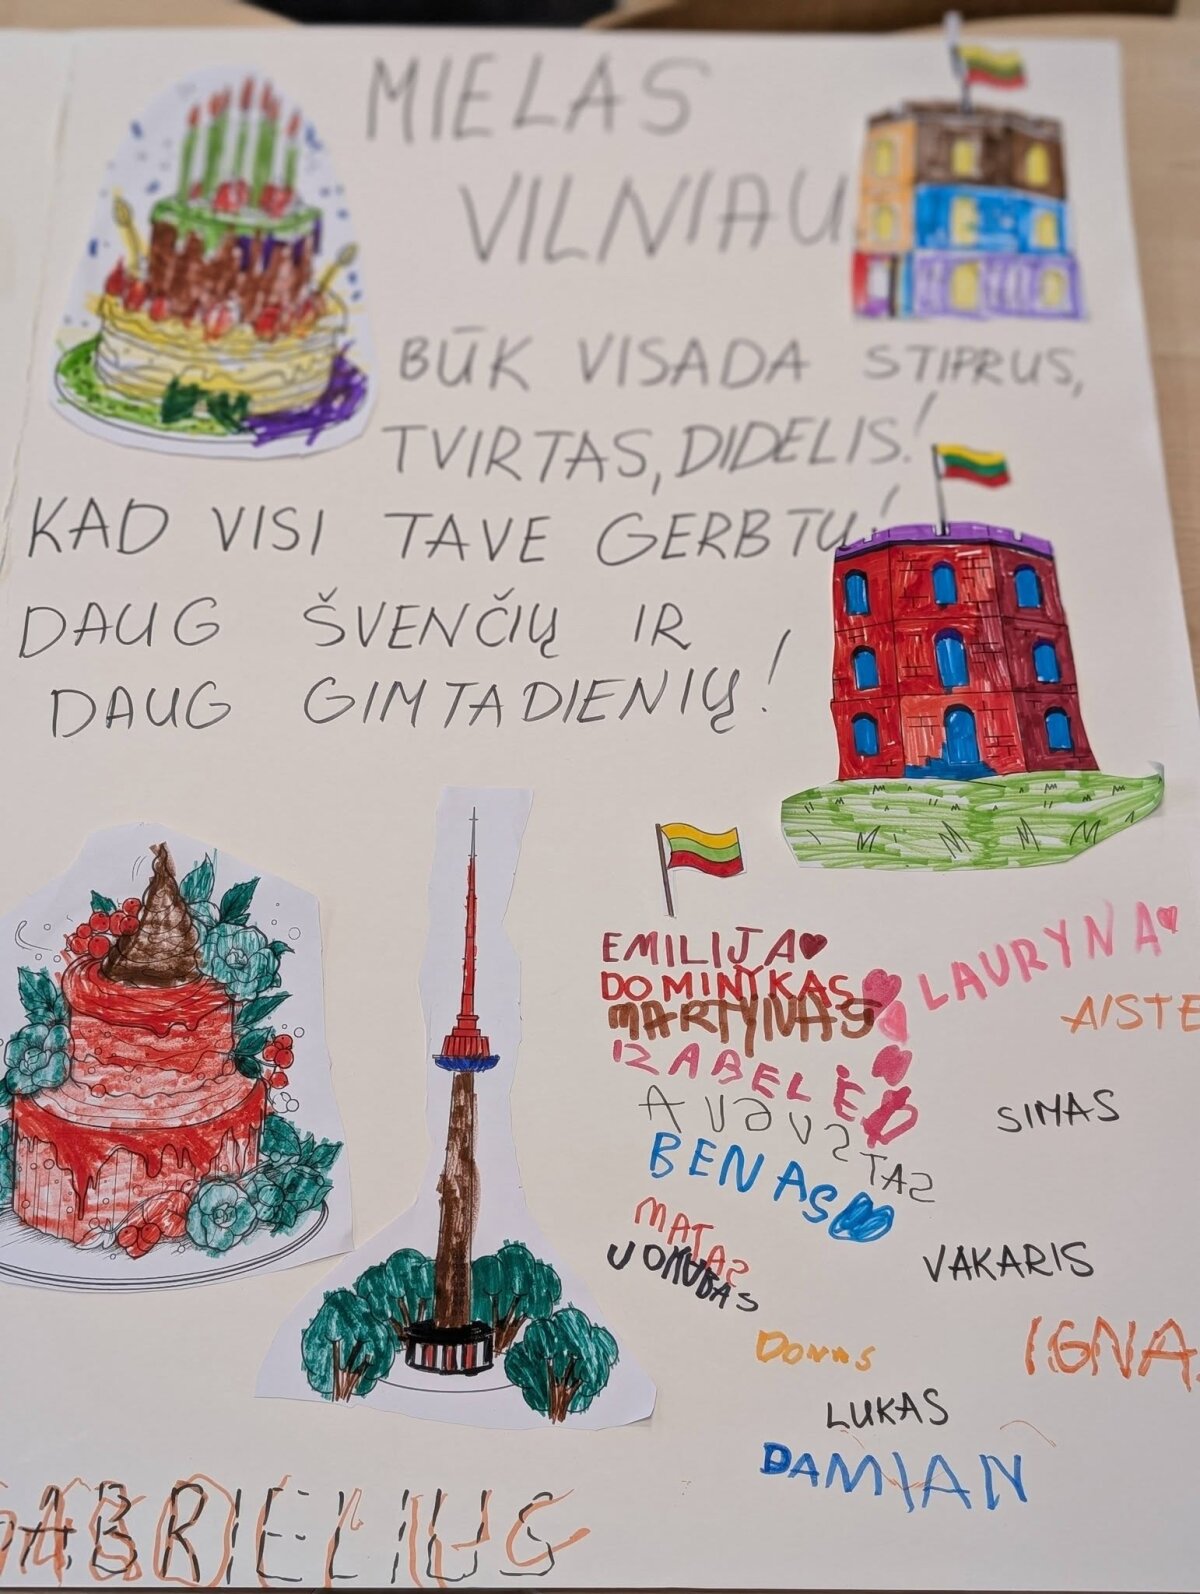 MIELAS
VILNIAU
BŪK VISADA STIPRUS,
TVIRTAS, DIDELIS!
KAD VISI TAVE GERBTŲ!
DAUG ŠVENČIŲ IR
DAUG GIMTADIENIŲ!
EMILIJA
LAURYNA
DOMINYKAS
MARTYNAS
AISTE
IZABELĖ
AUGUSTAS
SIMAS
BENAS
MATAS
VAKARIS
DONAS
IGNA
LUKAS
DAMIAN
GABRIELIUS